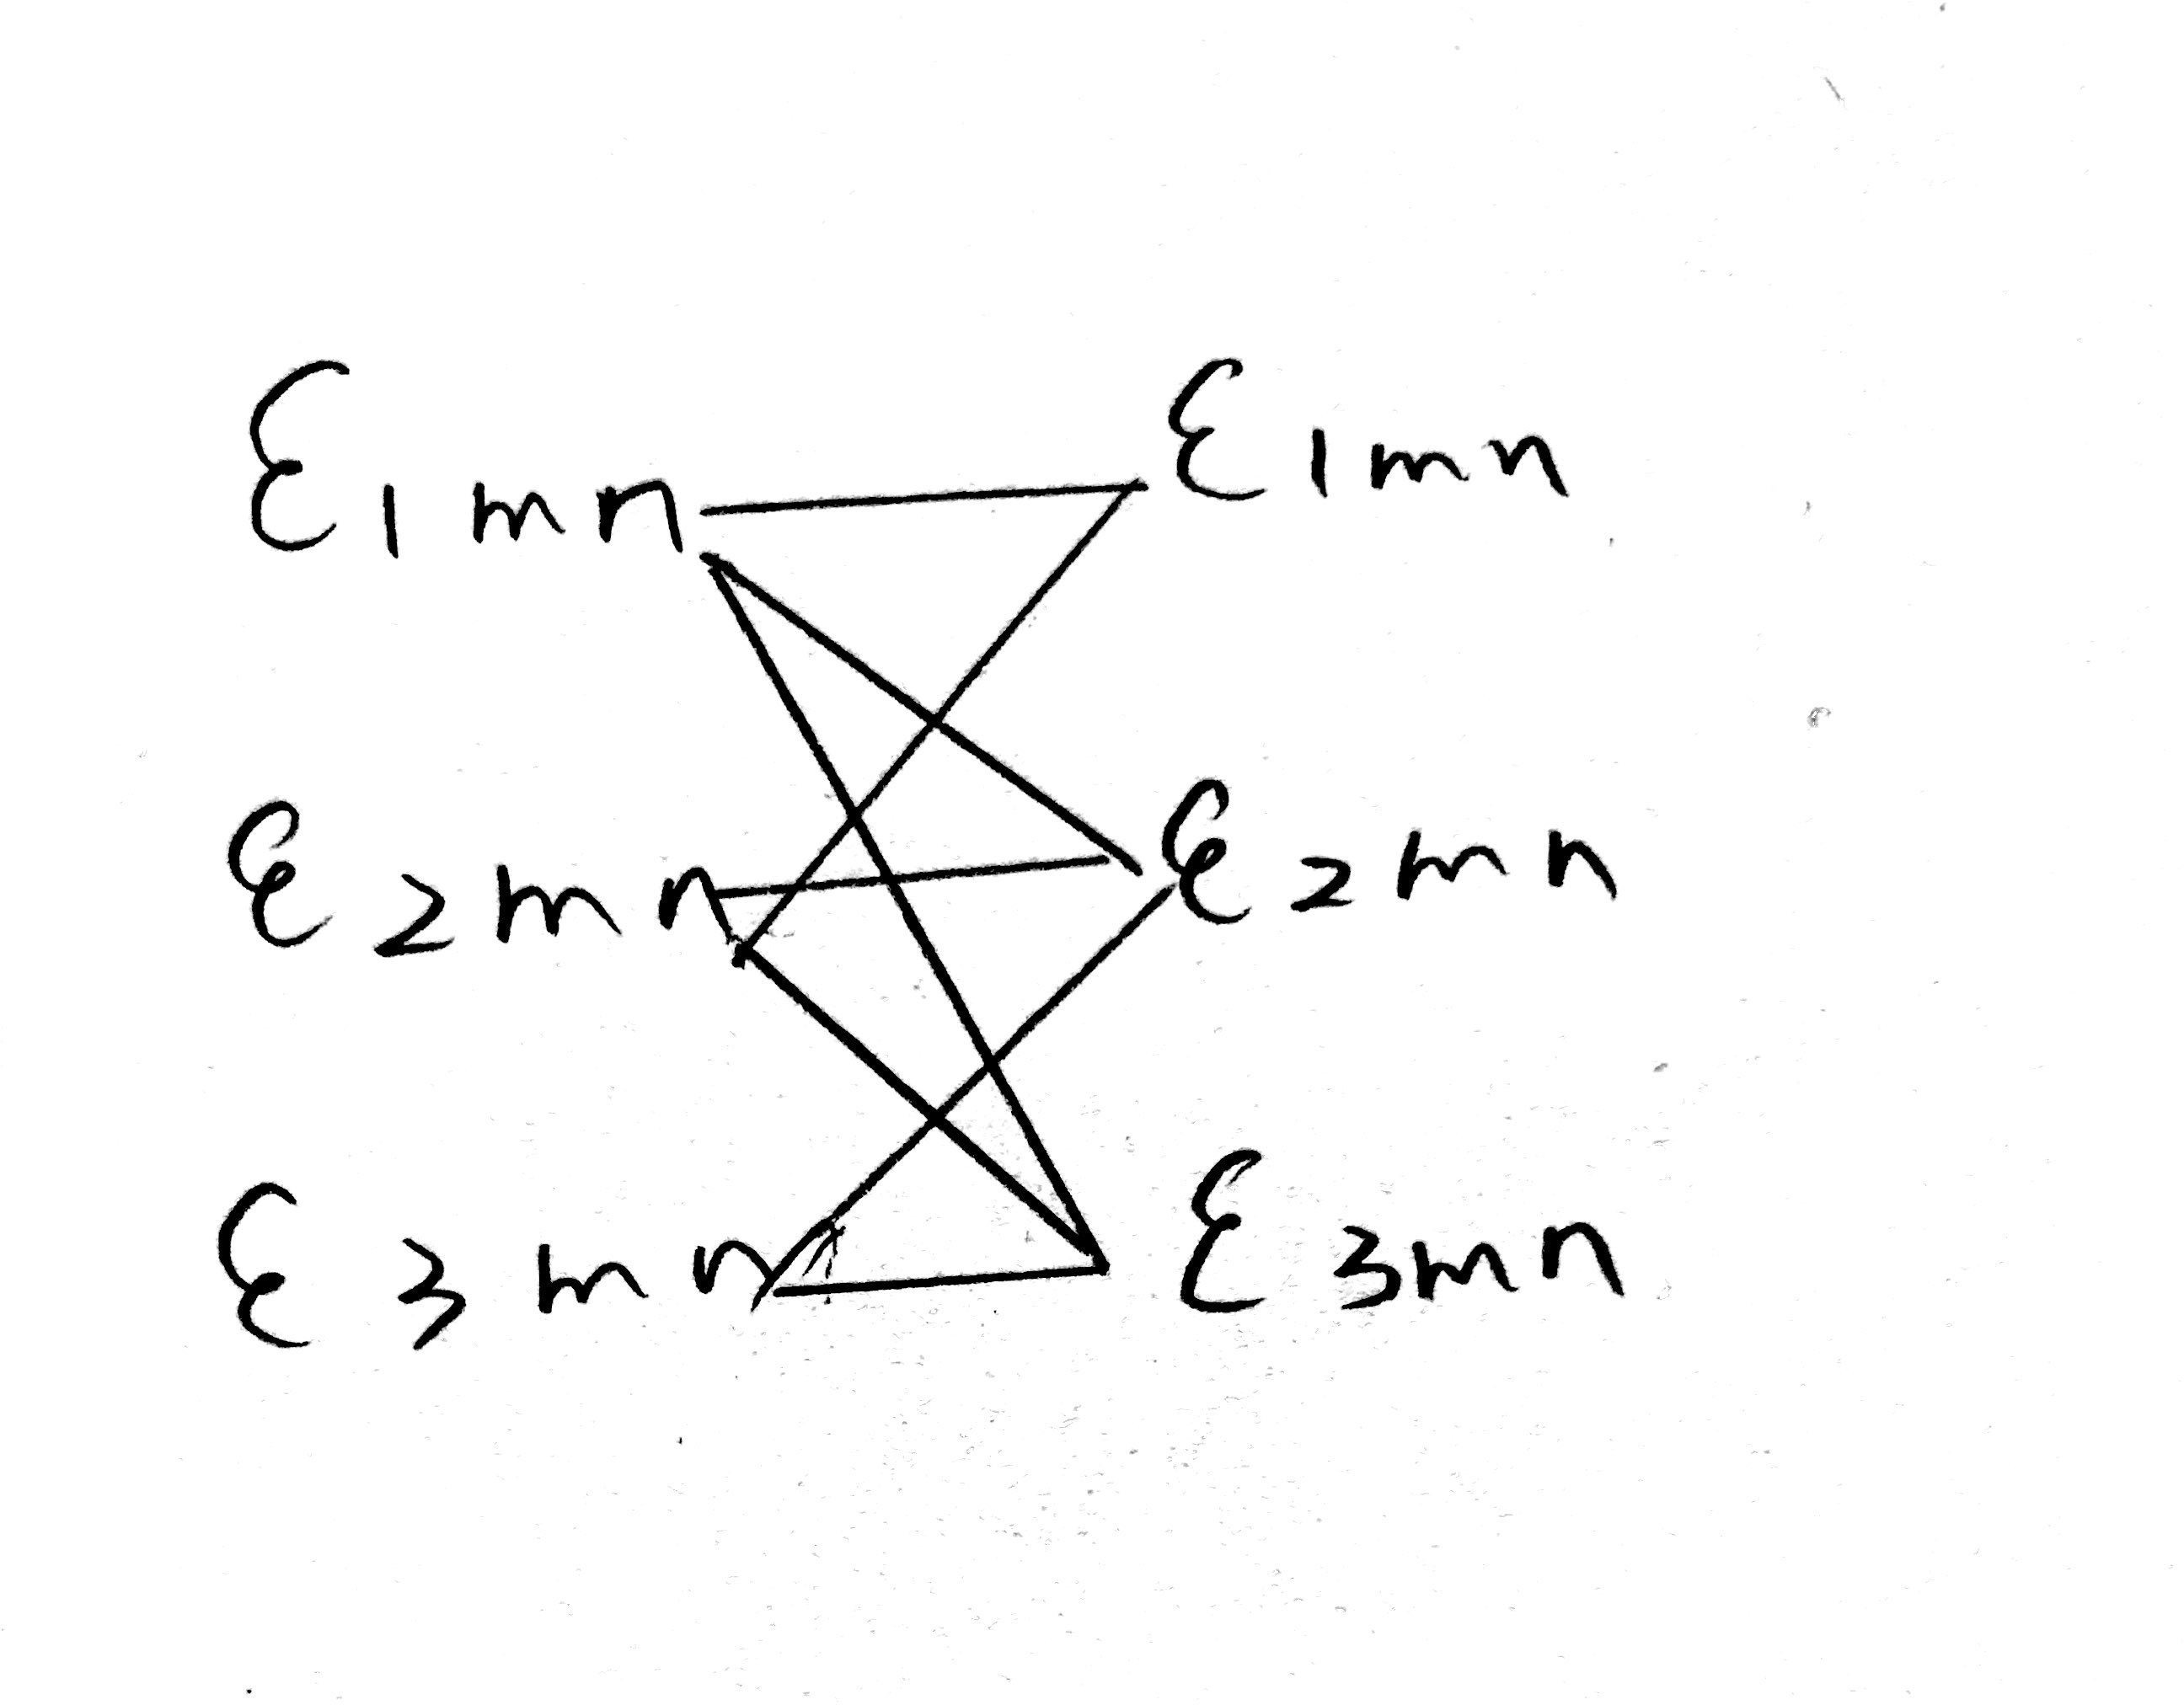 ε1mn ε1mn
ε2mn ε2mn
ε3mn ε3mn